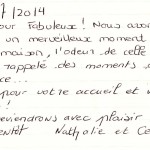 7/2014
our Fabuleux ! Nous avons
un merveilleux moment
maison, l'odeur de celle
rappelé des moments
ce...
pour votre accueil et
!
eviendrons avec plaisir
entôt Nathalie et Ce